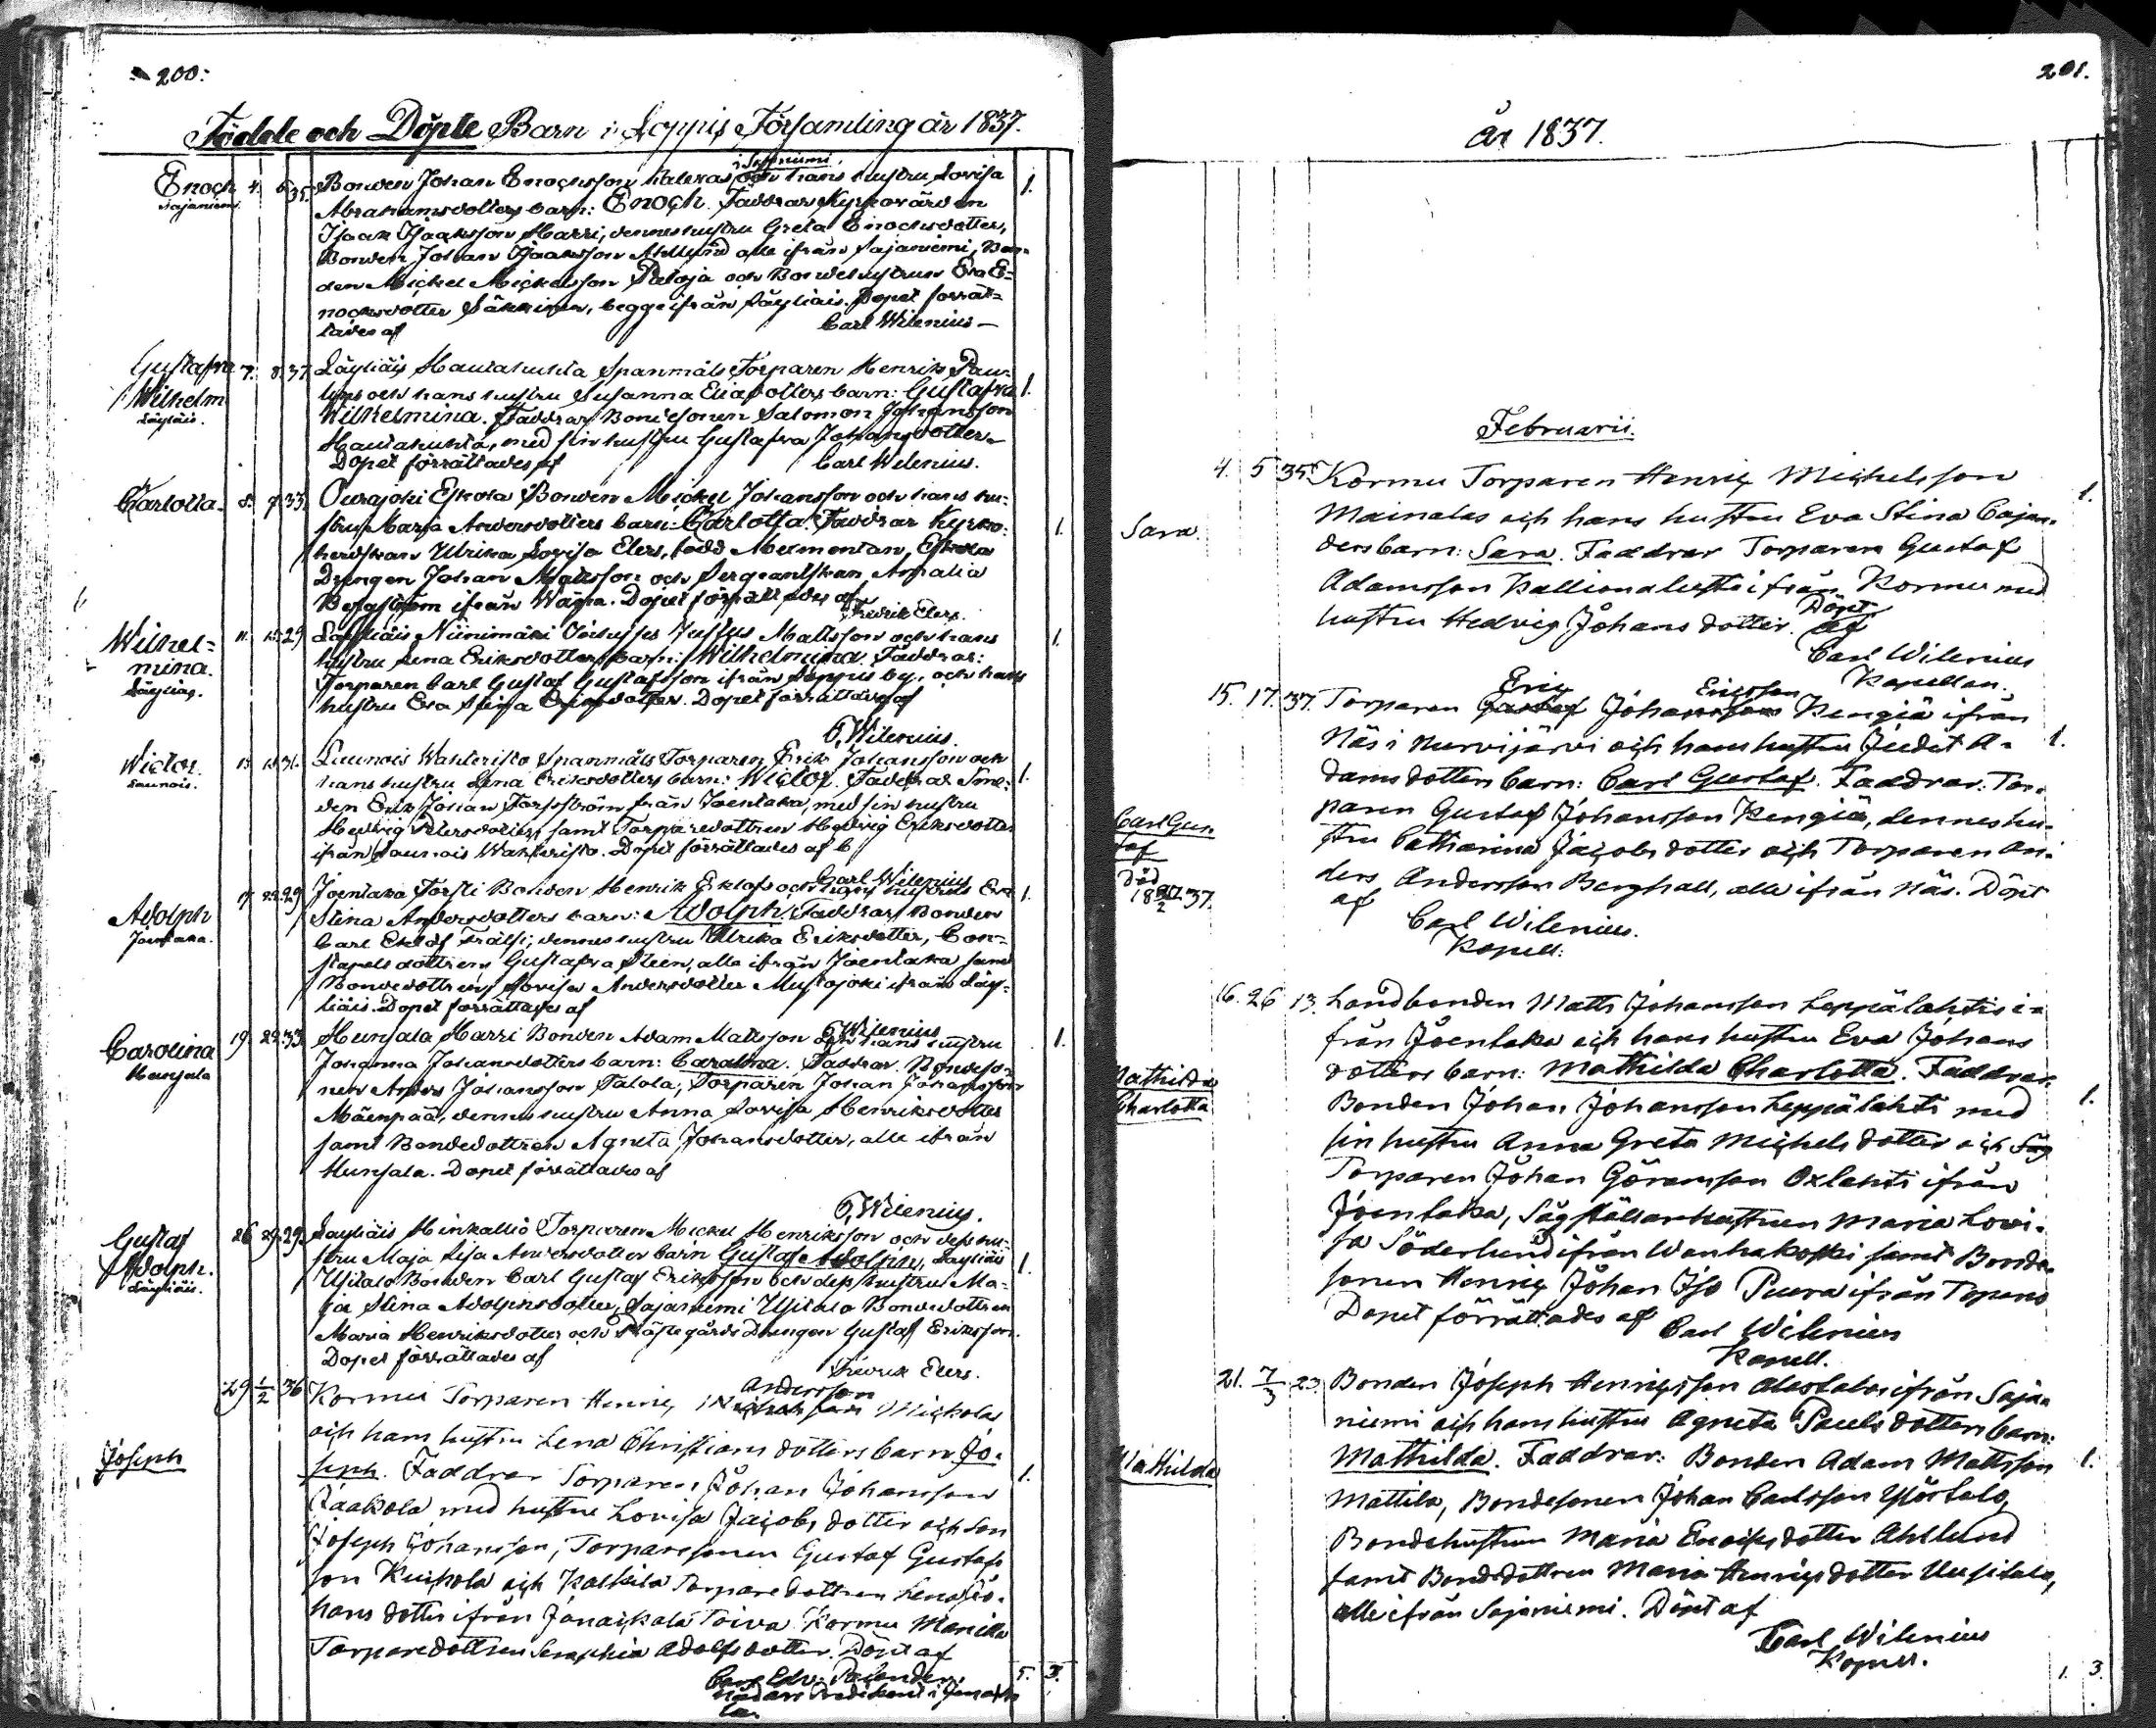 200.
Födde och Döpte Barn i Loppis Församling år 1837.
Enoch 4. 5 35. Bonden Johan Enochsson och hans hustru Lovisa 1.
Sajaniemi. Abrahamsdotters barn: Enoch. Faddrar Kyrkovärden
Isaak Isaaksson Harri, dennes hustru Greta Enochsdotter,
Bonden Johan Isaaksson Ahllund alle ifrån Sajaniemi, Bon-
den Michel Michelsson Pietoja och Bondehustrun Eva E-
nochsdotter Säkkinen, begge ifrån Läyliäis. Dopet förrät-
tades af Carl Wilenius
Gustafva 7. 8. 37. Läyliäis Hautahuhta Spanmåls Torparen Henrik Pau-
Wilhelm och hans hustru Susanna Eliædotters barn: Gustafva 1.
Läyliäis. Wilhelmina. Faddrar Bondesonen Salomon Johansson
Hautahuhta, med sin hustru Gustafva Johansdotter
Dopet förrättades af Carl Wilenius.
Carlotta. 8. 9 33. Ourajoki Eskola Bonden Michel Johansson och hans hu-
stru Maria Andersdotters barn: Carlotta. Faddrar Kyrko- 1.
herdskan Ulrika Lovisa Elers, född Melmontan, Eskola
Drengen Johan Mattsson och Sergeantskan Amalia
Bergström ifrån Wäna. Dopet förrättades af
Fredrik Elers.
Wilhel- 11. 15. 29 Läyliäis Niinimäki Inhyses Jussus Mattsson och hans 1.
mina. hustru Lena Eriksdotters barn: Wilhelmina. Faddrar:
Läyliäis. Torparen Carl Gustaf Gustafsson ifrån Loppis by, och hans
hustru Eva Stina Eriksdotter. Dopet förrättades af
C. Wilenius.
Wictor. Launois Wahteristo Spanmåls Torparen Erik Johansson och
Launois. hans hustru Lena Eriksdotters barn: Wictor. Faddrar Sme- 1.
den Erik Johan Forsström från Joentaka, med sin hustru
Hedvig Petersdotter, samt Torparedottren Hedvig Eriksdotter
ifrån Launois Wahteristo. Dopet förrättades af
Carl Wilenius
17 22. 29 Joentaka Forsti Bonden Henrik Eklöfs och hans hustrus Eva 1.
Adolph Stina Andersdotters barn: Adolph. Faddrar Bonden
Joentaka. Carl Eklöf Frälsi, dennes hustru Ulrika Eriksdotter, Con-
stapels dottren Gustafva Steen, alla ifrån Joentaka samt
Bondedottren Lovisa Andersdotter Mustajoki ifrån Läy-
liäis. Dopet förrättades af
C. Wilenius
Carolina 19. 22. 33. Hunsala Harri Bonden Adam Mattsson och hans hustru 1.
Hunsala Johanna Johansdotters barn: Carolina. Faddrar Bondeso-
nen Anders Johansson Talola, Torparen Johan Johansson
Mäenpää, dennes hustru Anna Lovisa Henriksdotter
samt Bondedottren Agneta Johansdotter, alle ifrån
Hunsala. Dopet förrättades af
C. Wilenius.
Gustaf 26 29. 29. Läyliäis Hinkallio Torparen Michel Henriksson och dess hu-
Adolph. stru Maja Lisa Andersdotters barn Gustaf Adolph, Läyliäis 1.
Läyliäis. Ujitalo Bonden Carl Gustaf Eriksson och dess hustru Ma-
ja Stina Adolphsdotter, Sajaniemi Ujitalo Bondedottren
Maria Henriksdotter och Prästegårds Drengen Gustaf Eriksson.
Dopet förrättades af Fredrik Elers.
29 1/2 36 Kormu Torparen Henric Andersson Michola
och hans hustru Lena Christians dotters barn Jo-
Joseph seph. Faddrar Torparen Johan Johansson 1.
Jaakola med hustru Lovisa Jacobs dotter och son
Joseph Johansson, Torparesonen Gustaf Gustafs
son Kuikola och Kalkila Torparedottren Lena Jo-
hans dotter ifrån Janakkala Toiva Kormu
Torparedottren Seraphia Adolfs dotter. Döpt af
Carl Edv.
5. 3.
201.
år 1837.
Februarii.
4. 5 35. Kormu Torparen Henric Michelsson
Mainalas och hans hustru Eva Stina Cajan- 1.
Sara. ders barn: Sara. Faddrar Torparen Gustaf
Adamsson Kallionalusta ifrån Kormu med
hustru Hedvig Johans dotter. Döpt
af
Carl Wilenius
Kapellan.
15. 17. 37. Torparen Eric Ericsson Kengiä ifrån
Näs i Nurmijärvi och hans hustru Judit A- 1.
dams dotters barn: Carl Gustaf. Faddrar: Tor-
Carl Gus- paren Gustaf Johansson Kengiä, dennes hu-
taf stru Catharina Jacobs dotter och Torparen An-
Död ders Andersson Berghall, alle ifrån Näs. Döpt
af
Carl Wilenius.
Kapell:
16. 26 13. Landbonden Matts Johansson Leppälahtis i-
från Joentaka och hans hustru Eva Johans
dotters barn: Mathilda Charlotta. Faddrar:
Mathilda Bonden Johan Johansson Leppälahti med 1.
Charlotta sin hustru Anna Greta Michels dotter och
Torparen Johan Göransson Oxlahti ifrån
Joentaka, Sågställarehustrun Maria Lovi-
sa Söderlund ifrån Wanhakoski samt Bonde-
sonen Henric Johan Iso Puura ifrån Topeno
Dopet förrättades af Carl Wilenius
Kapell.
21. 7/3 23. Bonden Joseph Henricsson Alastalos ifrån Saja-
niemi och hans hustru Agneta Pauls dotters barn:
Mathilda Mathilda. Faddrar: Bonden Adam Mattsson 1.
Mattila, Bondesonen Johan Carlsson Ylöstalo,
Bondehustrun Maria Enochs dotter Ahllund
samt Bondedottren Maria Henrics dotter Uusitalo,
alle ifrån Sajaniemi. Döpt af
Carl Wilenius
Kapell.
1. 3.